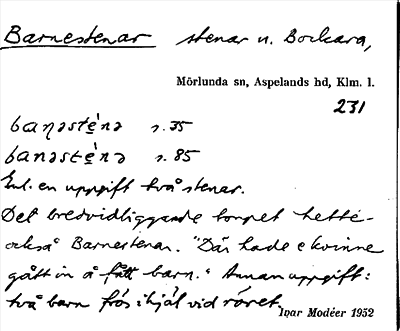 Barnestenar stenar n. Bockara,
Mörlunda sn, Aspelands hd, Klm. l.
231
baɳəsténə s. 35
banəsténə s. 85
Enl. en uppgift två stenar.
Det bredvidliggande torpet hette
också Barnestenar. "Där hade e kvinne
gått in å fått barn." Annan uppgift:
två barn frös ihjäl vid röret.
Inar Modéer 1952